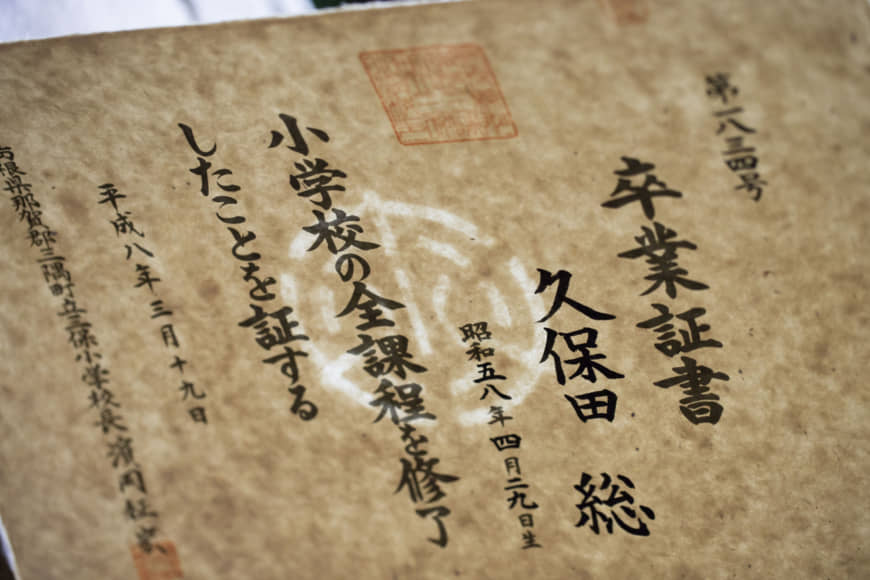 第一八三四号
卒業証書
久保田 総
昭和五八年四月二九日生
小学校の全課程を修了
したことを証する
平成八年三月十九日
島根県那賀郡三隅町立三保小学校長 濱岡